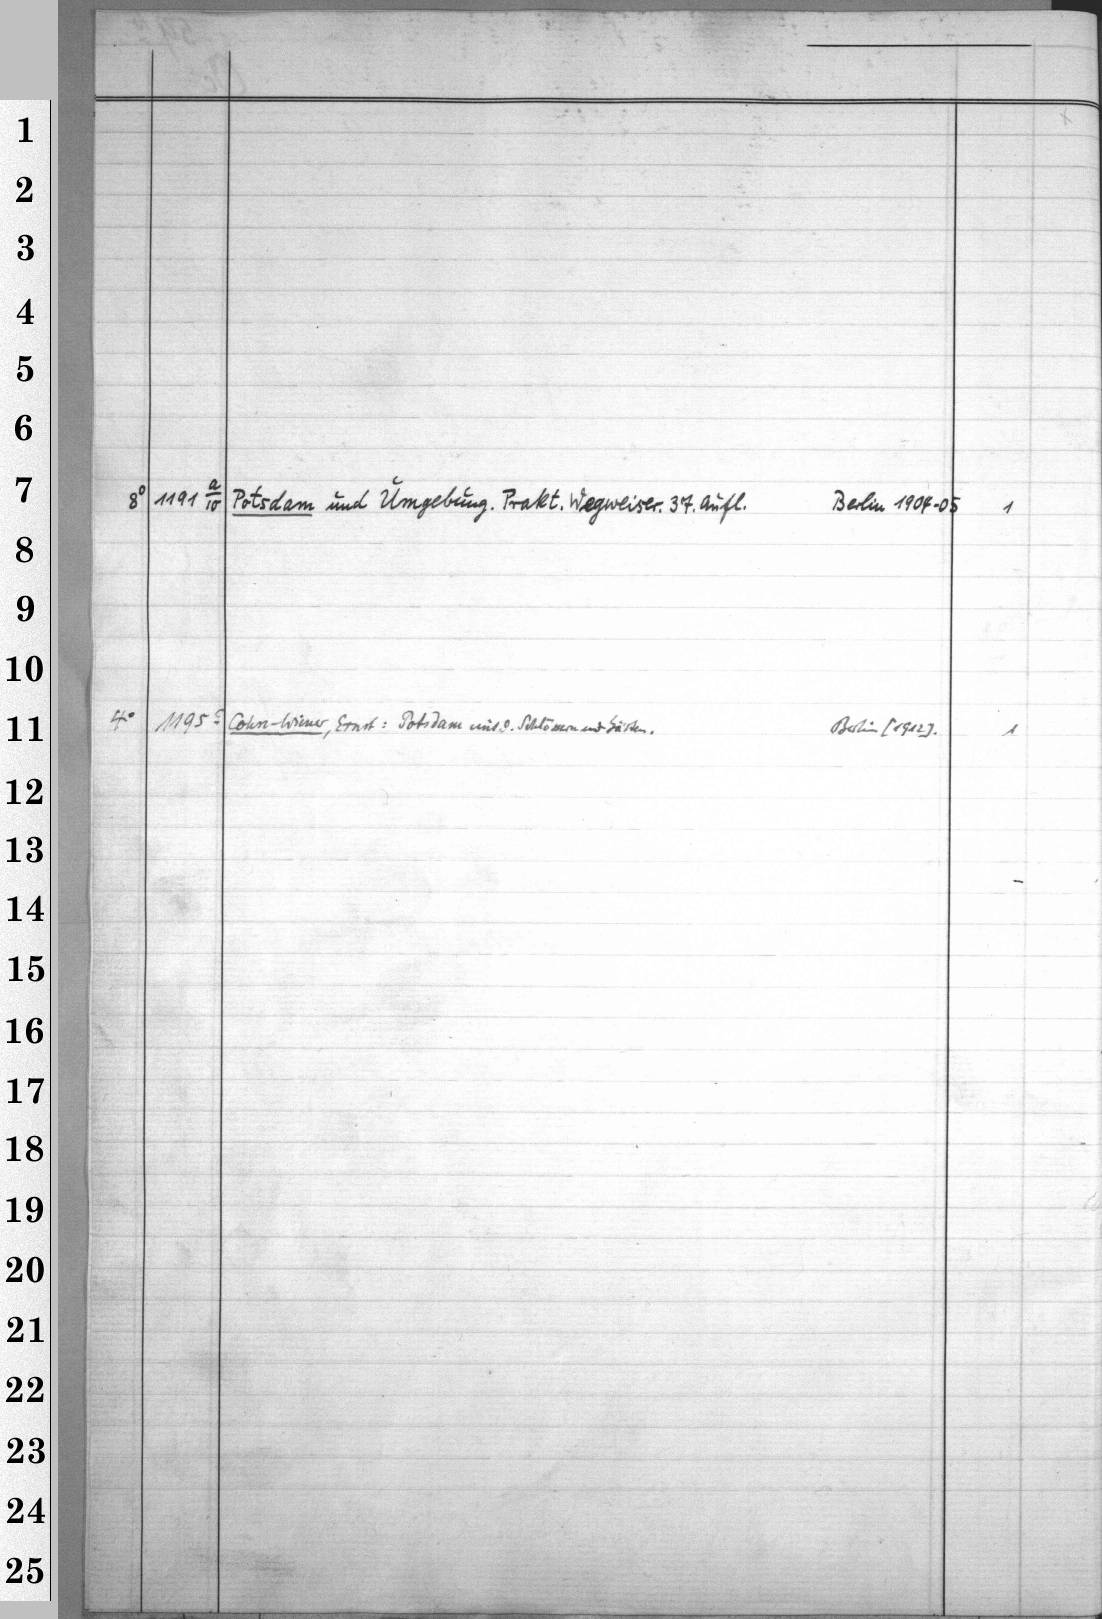 1
2
3
4
5
6
7
8° 1191 a/10 Potsdam und Umgebung. Prakt. Wegweiser. 37. Aufl. Berlin 1904-05 1
8
9
10
11
4° 1195 Cohn-Wiener, Ernst: Potsdam mit d. Schlössern und Gärten. Berlin [1912]. 1
12
13
14
15
16
17
18
19
20
21
22
23
24
25